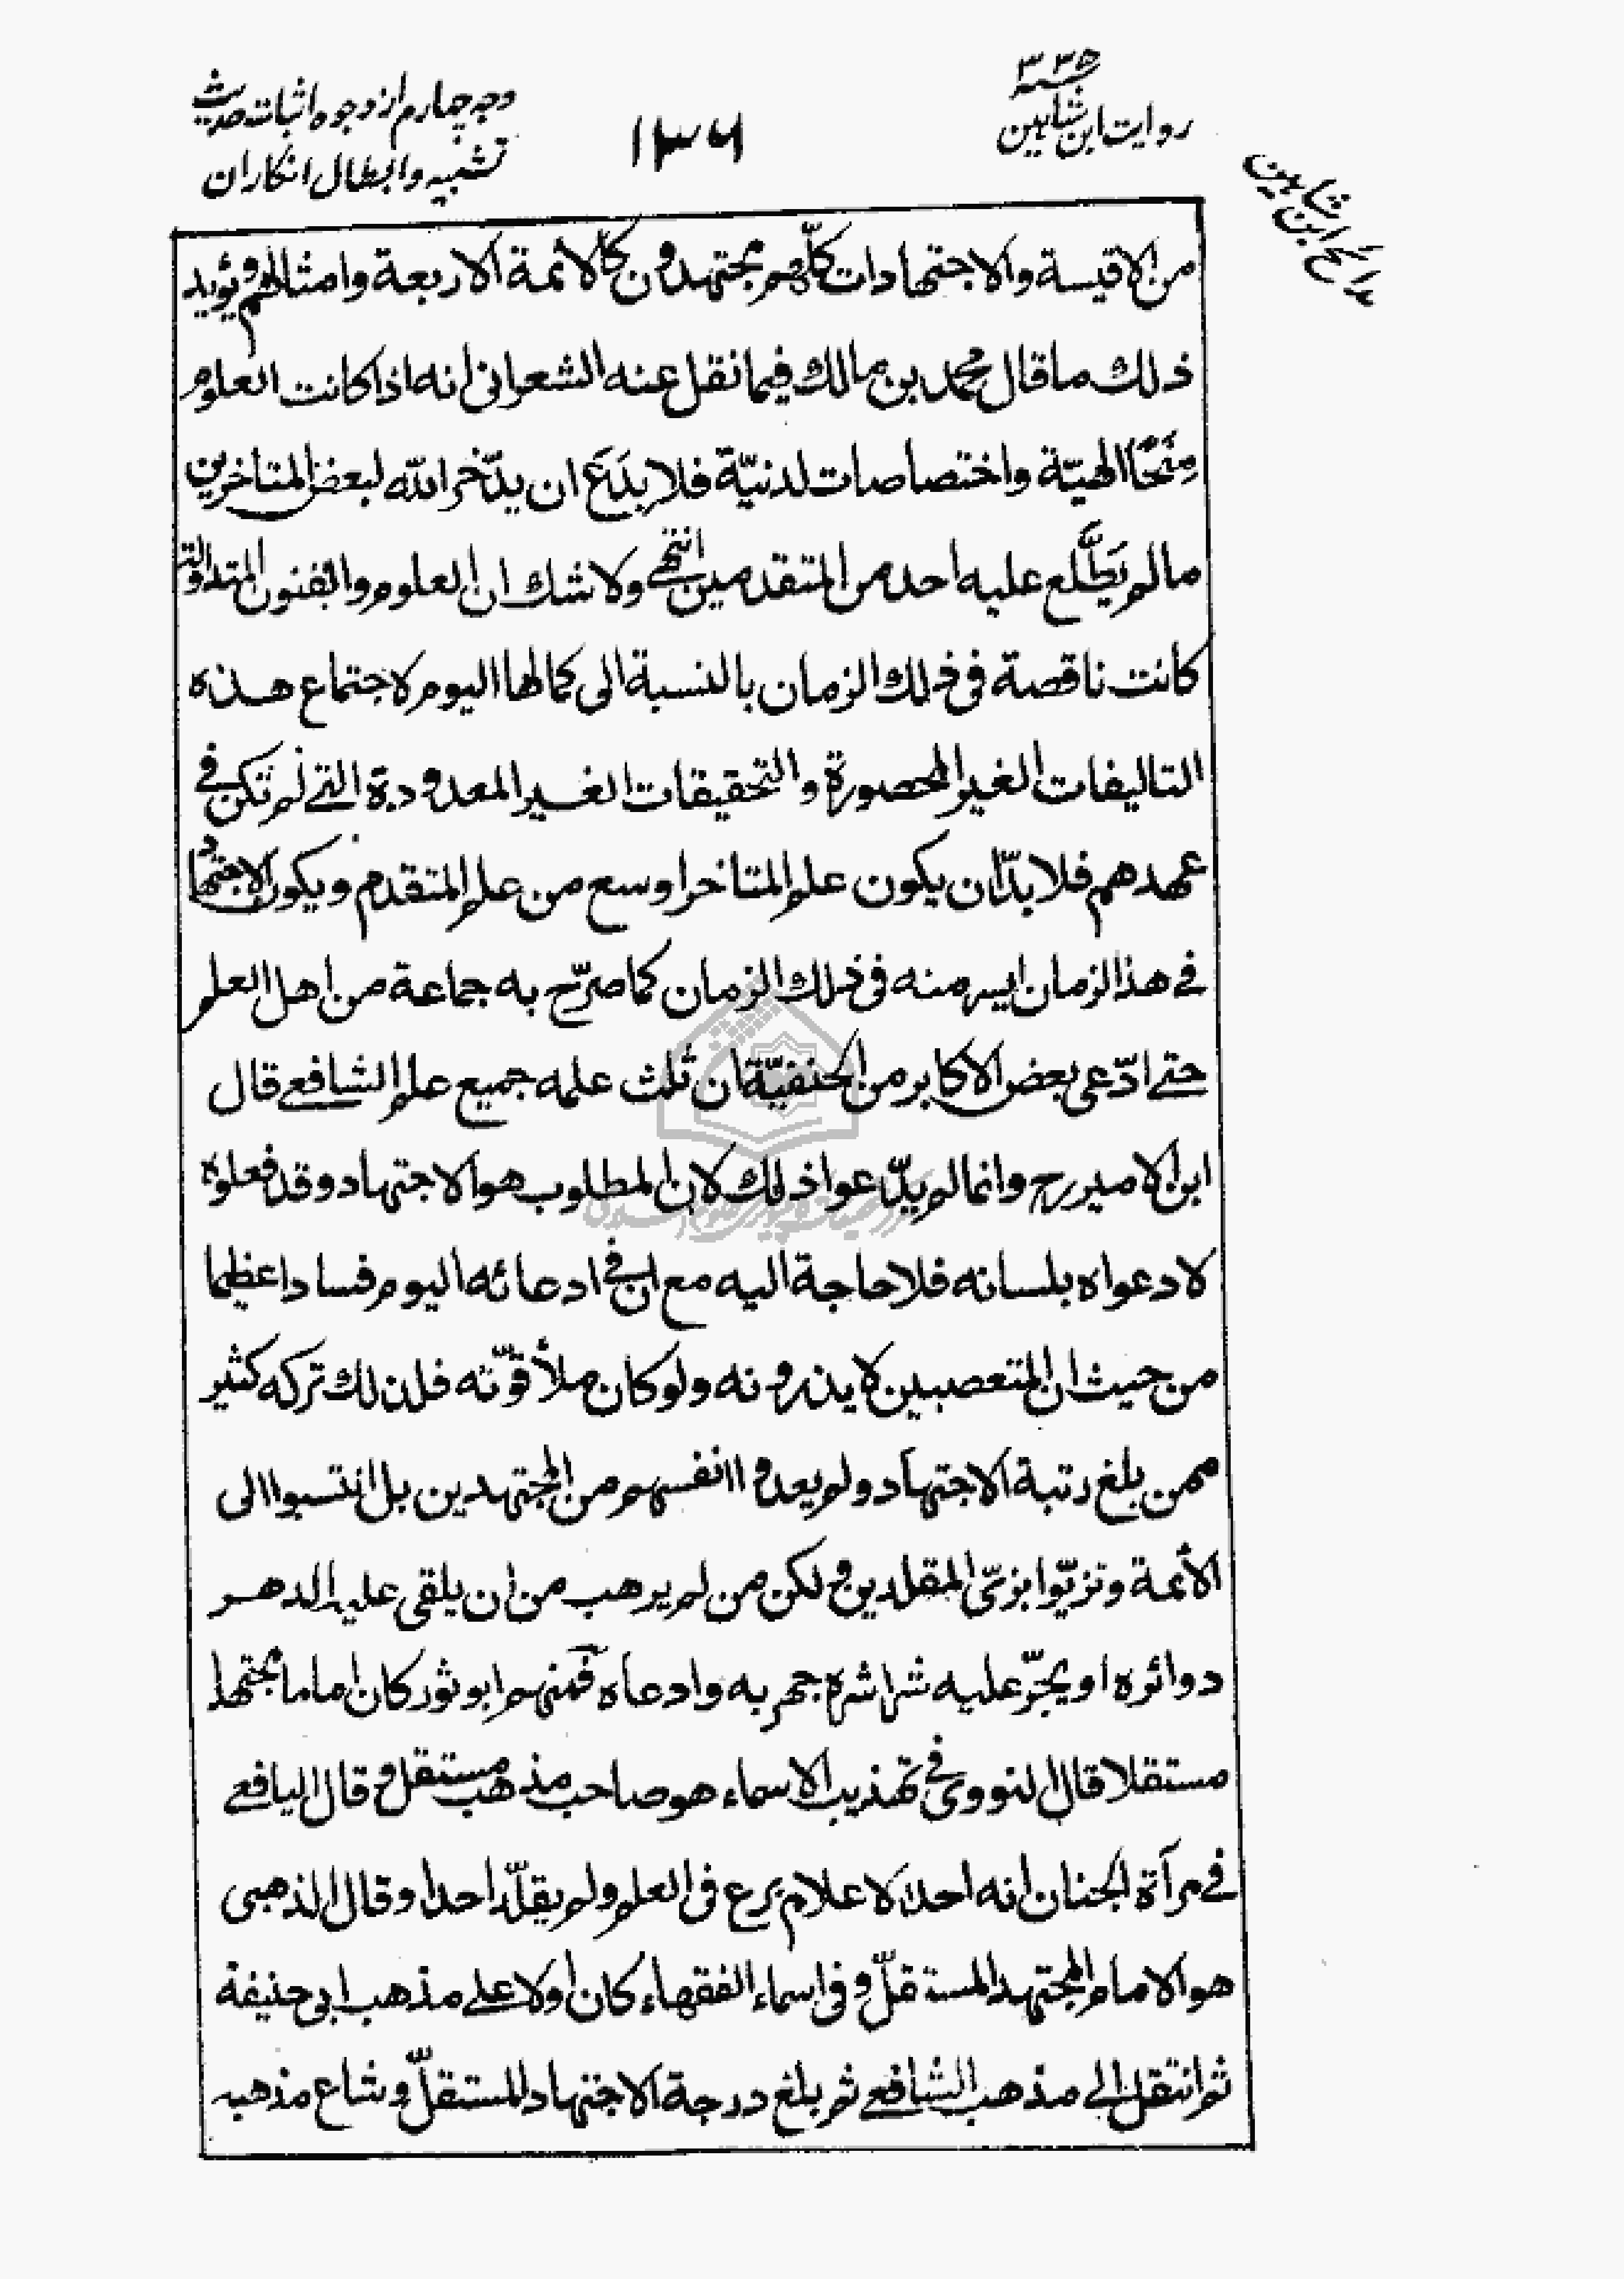 ۳۳۵
روايت ابن شاهين
۱۳۶
وجه چهارم از وجوه اثبات حديث
تشبيه وابطال انكاران
مدائح ابن شاهين
من الاقيسة والاجتهادات كلّهم مجتهدون كالأئمة الاربعة وامثالهم ويؤيد
ذلك ما قال محمد بن مالك فيما نقل عنه الشعرانى انه اذا كانت العلوم
مِنَحًا الهيّة واختصاصات لدنيّة فلا بَدَعَ ان يدّخر الله لبعض المتاخرين
ما لم يَطَّلع عليه احد من المتقدمين انتهى ولا شك ان العلوم والفنون المتداولة
كانت ناقصة فى ذلك الزمان بالنسبة الى كمالها اليوم لاجتماع هذه
التاليفات الغير المحصورة والتحقيقات الغير المعدودة التى لم تكن فى
عهدهم فلا بدّ ان يكون علم المتاخر اوسع من علم المتقدم ويكون الاجتهاد
فى هذا الزمان ايسر منه فى ذلك الزمان كما صرّح به جماعة من اهل العلم
حتى ادّعى بعض الاكابر من الحنفيّة ان ثلث علمه جميع علم الشافعى قال
ابن الامير رح وانما لم يدّعوا ذلك لان المطلوب هو الاجتهاد وقد فعلوه
لا دعواه بلسانه فلا حاجة اليه مع ان فى ادعائه اليوم فسادا عظيما
من حيث ان المتعصبين لا يذرونه ولو كان ملأ قوّته فلذلك تركه كثير
ممن بلغ رتبة الاجتهاد ولم يعدوا انفسهم من المجتهدين بل انتسبوا الى
الأئمة وتزيّوا بزىّ المقلدين ولكن من لم يرهب من ان يلقى عليه الدهر
دوائره او يجرّ عليه شراشره جهر به وادعاه فمنهم ابو ثور كان اماما مجتهدا
مستقلا قال النووى فى تهذيب الاسماء هو صاحب مذهب مستقل وقال اليافعى
فى مرآة الجنان انه احد الاعلام برع فى العلم ولم يقلّد احدا وقال الذهبى
هو الامام المجتهد المستقلّ وفى اسماء الفقهاء كان اولا على مذهب ابى حنيفة
ثم انتقل الى مذهب الشافعى ثم بلغ درجة الاجتهاد المستقلّ وشاع مذهبه